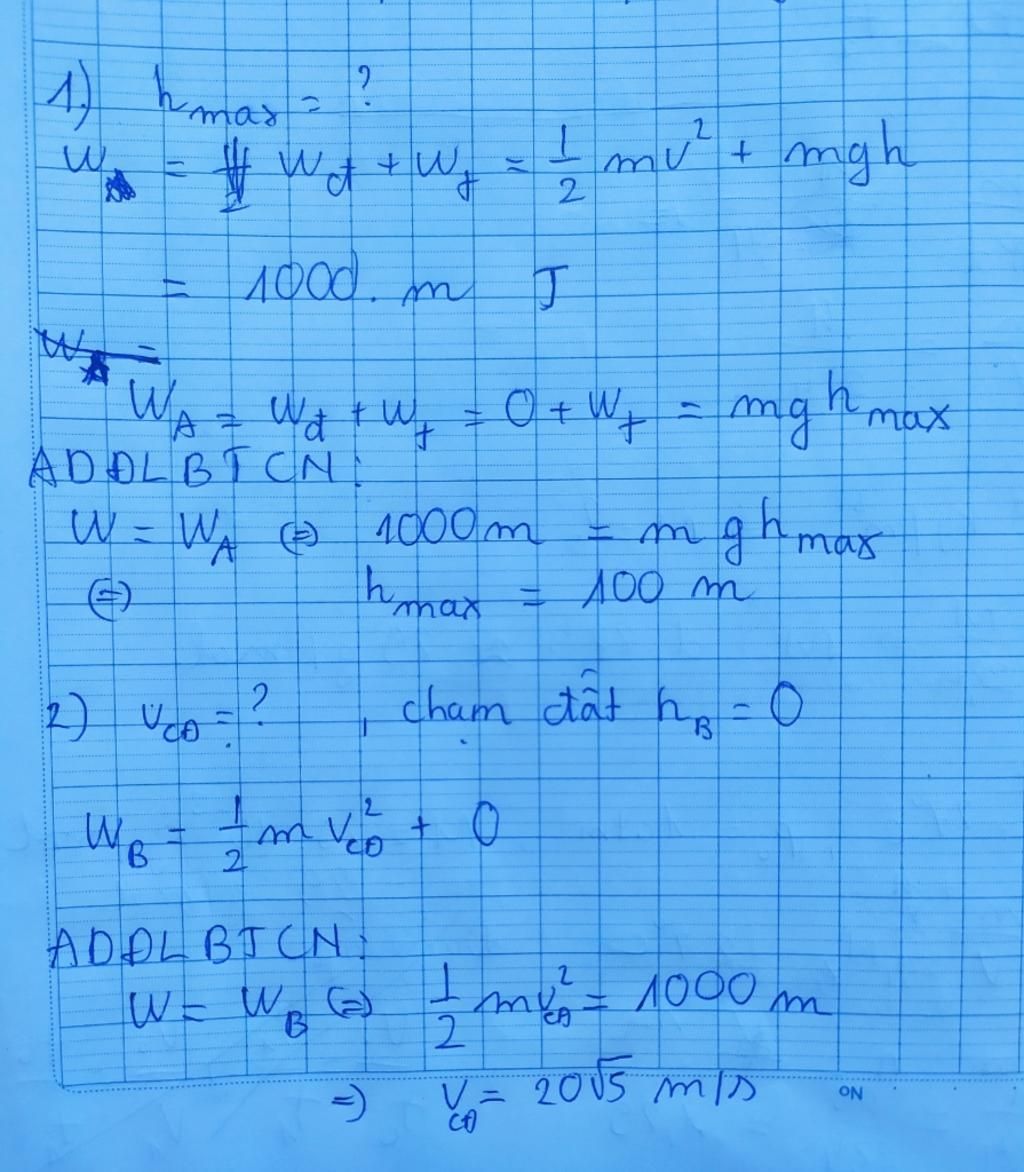 1) h max = ?
W = Wđ + Wt = 1/2 mv² + mgh
= 1000. m J
W =
W_A = Wđ + Wt = 0 + Wt = mg h max
ADĐLBTCN:
W = W_A ⇔ 1000m = m g h max
⇔ h max = 100 m
2) v_CĐ = ? , chạm đất h_B = 0
W_B = 1/2 m v_CĐ² + 0
ADĐLBTCN:
W = W_B ⇔ 1/2 m v_CĐ² = 1000 m
⇒ v_CĐ = 20√5 m/s
ON